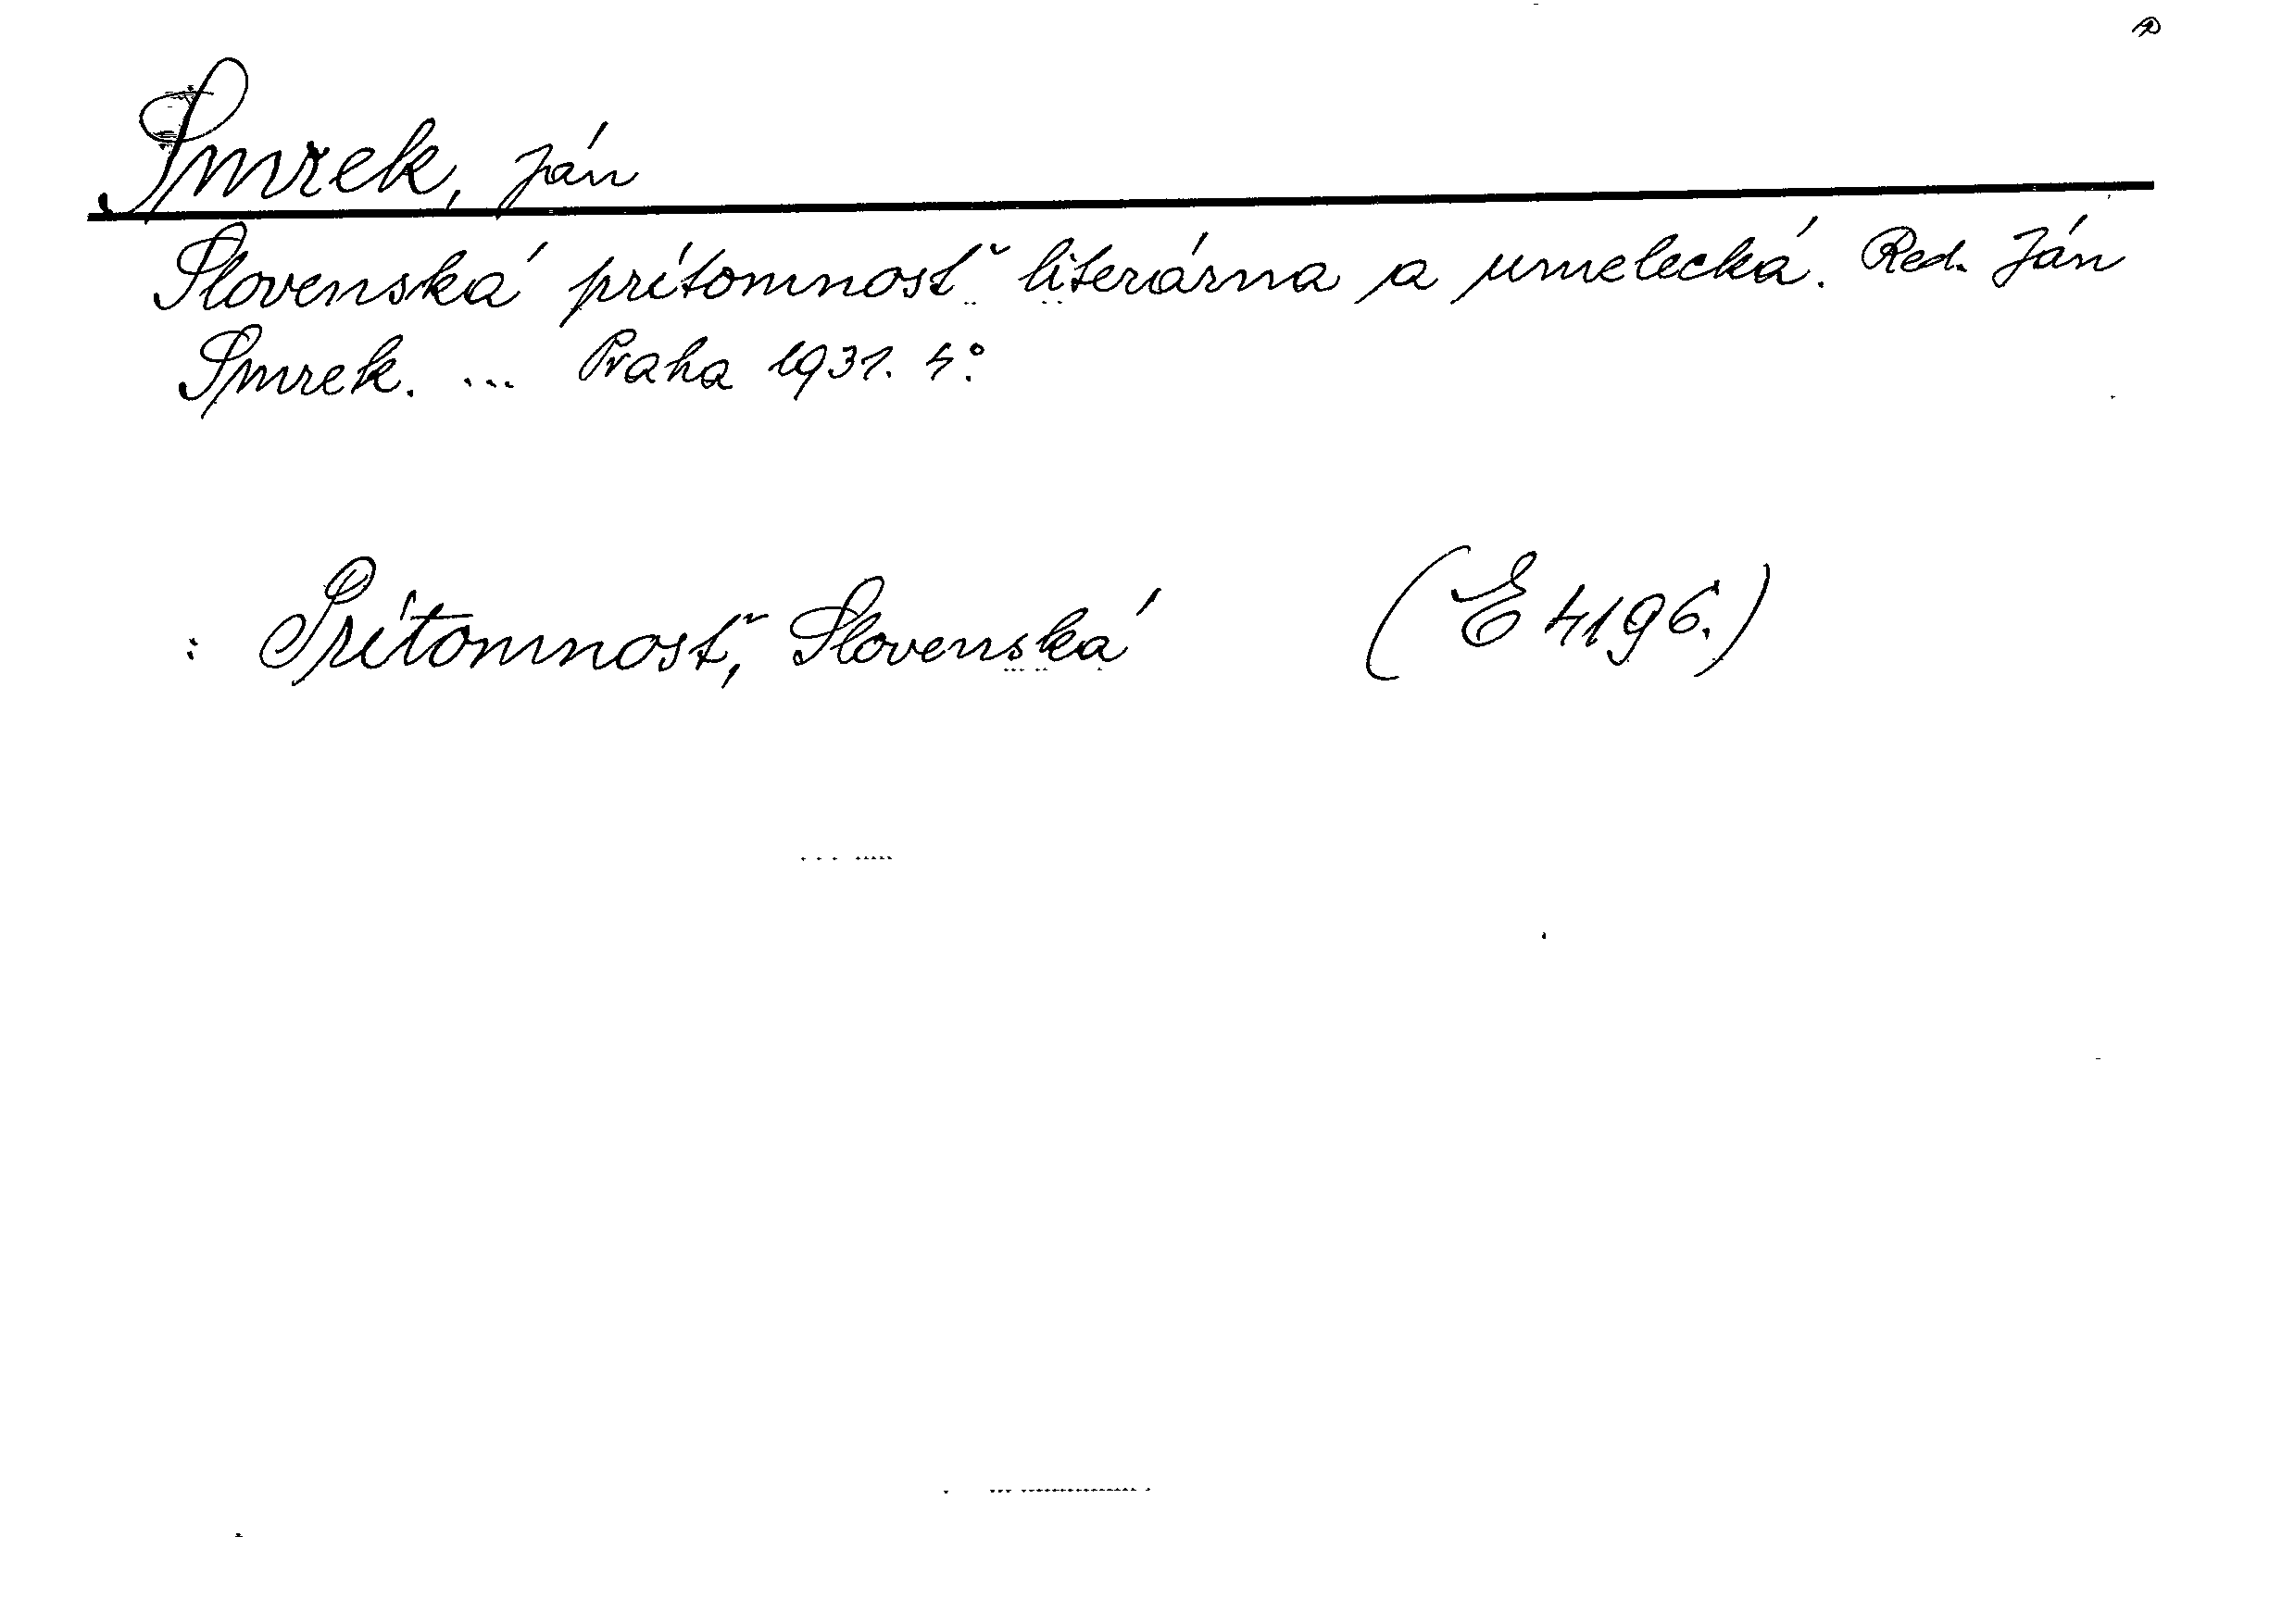 Smrek, Ján
Slovenská prítomnosť literárna a umelecká. Red. Ján
Smrek. ... Praha 1931. 4°.
: Prítomnosť, Slovenská (E 4196.)